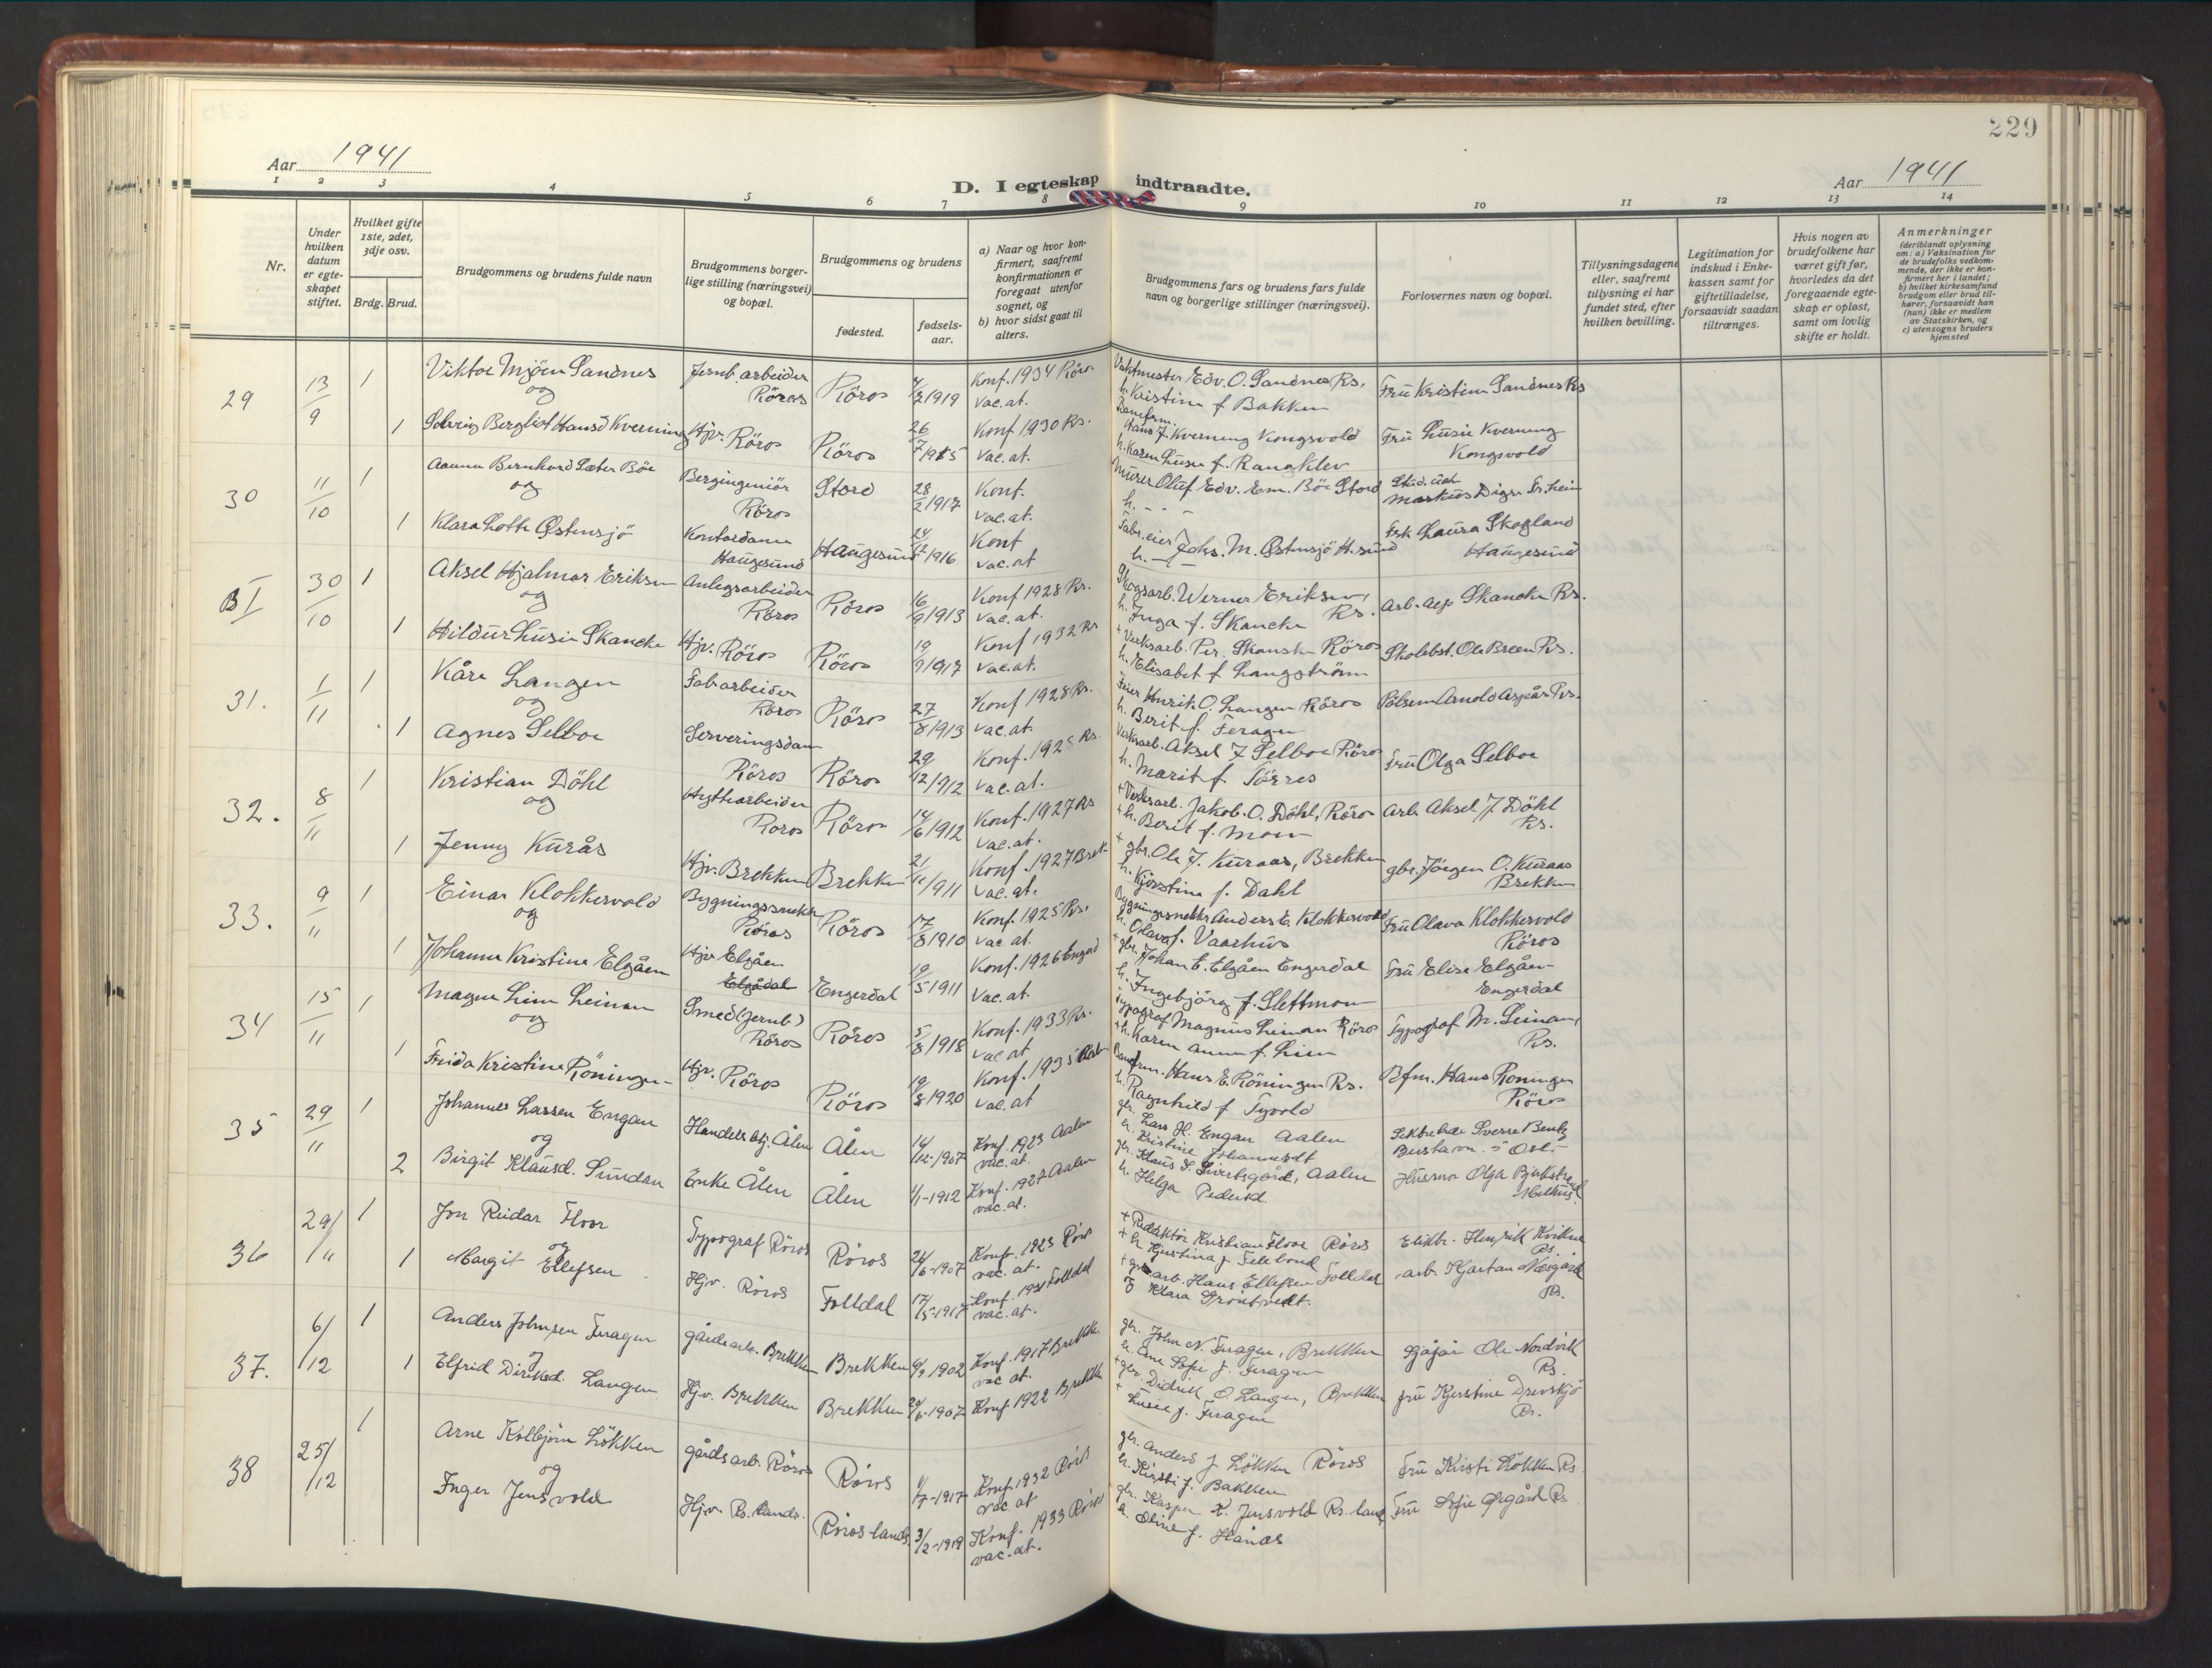 229
Aar 1941
D. I egteskap indtraadte.
Aar 1941
1 2 3 4 5 6 7 8 9 10 11 12 13 14
Nr.
Under hvilken datum er egte-skapet stiftet.
Hvilket gifte 1ste, 2det, 3dje osv.
Brdg. Brud.
Brudgommens og brudens fulde navn
Brudgommens borger-lige stilling (næringsvei) og bopæl.
Brudgommens og brudens
fødested.
fødsels-aar.
a) Naar og hvor kon-firmert, saafremt konfirmationen er foregaat utenfor sognet, og
b) hvor sidst gaat til alters.
Brudgommens fars og brudens fars fulde navn og borgerlige stillinger (næringsvei).
Forlovernes navn og bopæl.
Tillysningsdagene eller, saafremt tillysning ei har fundet sted, efter hvilken bevilling.
Legitimation for indskud i Enke-kassen samt for giftetilladelse, forsaavidt saadan tiltrænges.
Hvis nogen av brudefolkene har været gift før, hvorledes da det foregaaende egte-skap er opløst, samt om lovlig skifte er holdt.
Anmerkninger
(deriblandt oplysning om: a) Vaksination for de brudefolks vedkom-mende, der ikke er kon-firmert her i landet; b) hvilket kirkesamfund brudgom eller brud til-hører, forsaavidt han (hun) ikke er medlem av Statskirken, og c) utensogns bruders hjemsted
29 13/9 1 Viktor Mjöen Sandnes Jernb. arbeider Röros Röros 1919 Konf. 1934 Röros vac. at. Vaktmester Edv. O. Sandnes Rs. Fru Kristine Sandnes Rs
og h. Kristine f Bakken
1 Solveig Bergliot Hansd Kverning Hjv. Röros Röros 26/7 1915 Konf 1930 Rs. vac. at. Hans J. Kverneng Kongsvold Fru Lusie Kverneng Kongsvold
h. Karen Lusie f.
30 11/10 1 Bernhard Sæter Böe Bergingeniör Röros Stord 28/2 1917 Konf. vac. at. Murer Oluf Edv. Em. Böe Stord Stud.
og h. - - -
1 Klara Lotte Östensjö Kontordame Haugesund Haugesund 1916 Konf vac. at Fabr. eier Johs. M. Östensjö H.sund Frk Laura Skogland Haugesund
BI 30/10 1 Aksel Hjalmar Eriksen Anlegsarbeider Röros Röros 16/9 1913 Konf 1928 Rs. vac. at. Skogsarb. Werner Eriksen, Rs. Arb. Skancke Rs.
og h. Inga f. Skancke
1 Hildur Lusie Skancke Hjv. Röros Röros 19/9 1917 Konf 1932 Rs vac. at. + Verksarb. Per Skancke Röros Skolebst. Ole Breen Rs.
h. Elisabet f. Langström
31. 1/11 1 Kåre Langen Fabrarbeider Röros Röros 27/8 1913 Konf 1928 Rs. vac. at. Feier Henrik O. Langen Röros Pölsem Arnold Aspås Rs.
og h. Berit f. Feragen
1 Agnes Selboe Serveringsdame Röros Röros 29/12 1912 Konf. 1928 Rs. vac. at. Verksarb. Aksel J Selboe Röros Fru Olga Selboe
h. Marit f. Törres
32. 8/11 1 Kristian Döhl Hyttearbeider Röros Röros 14/6 1912 Konf. 1927 Rs vac. at. + Verksarb. Jakob O. Döhl, Röros Arb. Aksel J. Döhl Rs.
og + h. Berit f. Moen
1 Jenny Kurås Hjv. Brekken Brekken 21/11 1911 Konf. 1927 Brek. vac. at. + gbr. Ole J. Kuraas, Brekken gbr. Jörgen O. Kuraas Brekken
h. Kjerstine f. Dahl
33. 9/11 1 Einar Klokkervold Bygningssnekker Röros Röros 17/8 1910 Konf. 1925 Rs. vac at. Bygningssnekker Anders E. Klokkervold Fru Olava Klokkervold Röros
og h. Olava f. Vaarhus
1 Johanne Kristine Elgåen Hjv Elgåen Elgådal Engerdal 19/5 1911 Konf. 1926 Engerd Vac. at. + gbr. Johan E. Elgåen Engerdal Fru Elise Elgåen Engerdal
h. Ingebjörg f. Slettmoen
34 15/11 1 Magne Lien Leinan Smed (Jernb) Röros Röros 5/8 1918 Konf. 1933 Rs. vac at Typograf Magnus Leinan Röros Typograf M. Leinan, Rs.
og + h. Karen Anna f. Lien
1 Frida Kristine Röningen Hjv. Röros Röros 19/8 1920 Konf. 1935 vac. at Banefrm. Hans E. Röningen Rs. Bfm. Hans Roningen Röros
h. Ragnhild f Tyvold
35 29/11 1 Johannes Larsen Engan Handelsbtj. Ålen Ålen 14/12-1907 Konf. 1923 Aalen vac. at. gbr. Lars H. Engan Aalen Sverre Bentz Oslo
og h. Kristine Johannesdt
2 Birgit Klausd. Sundan Enke Ålen Ålen 4/1-1912 Konf. 1927 Aalen vac. at. gbr. Klaus S. Aalen Husmor Olga Melhus
h. Helga Pedersd.
36 29/11 1 Jon Reidar Floor Typograf Röros Röros 24/6-1907 Konf. 1923 Röros vac. at. + Redaktör Kristian Floor Röros Elektr. Henrik Kvikne Rs.
og + h Kjerstina f Feilbond
1 Margit Ellefsen Hjv. Röros Folldal 17/5-1917 Konf. 1931 Folldal vac. at. + arb. Hans Ellefsen Folldal arb. Kjartan Næsgård Rs.
f Klara Gröntvedt.
37. 6/12 1 Anders Johnsen Feragen gårdsarb. Brekken Brekken 1902 Konf. 1917 Brekken vac at. gbr. John N. Feragen, Brekken Sjåför Ole Nordvik Rs.
og h. Ane Sofie f. Feragen
1 Elfrid Diriksd. Langen Hjv. Brekken Brekken 29/6-1907 Konf. 1922 Brekken + gbr. Didrik O Langen, Brekken fru Kjerstine Drevsjö Rs.
+ Lusie f. Feragen
38 25/12 1 Arne Kolbjörn Lökken gårdsarb. Röros Röros 1/7-1917 Konf. 1932 Röros vac. at gbr. Anders J Lökken Röros Fru Kirsti Lökken Rs
og h. Kirsti f. Bakken
Inger Jensvold Hjv. Rs. lands. Röros lands. 3/2-1919 Konf. 1933 Röros vac. at. gbr. Kasper K. Jensvold Rs. land, Fru Sofie Örgård Rs
h. Oline f. Hånæs